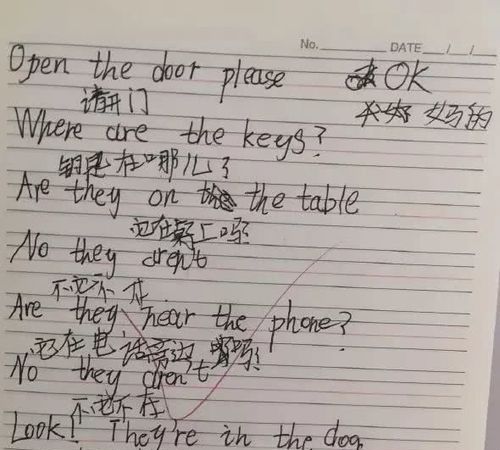 No. DATE / /
Open the door please OK
请开门 好的
Where are the keys?
钥匙在哪儿?
Are they on the table
它在桌上吗
No they aren't
不它不在
Are they near the phone?
它在电话旁边吗
No they aren't
不它不在
Look! They're in the door